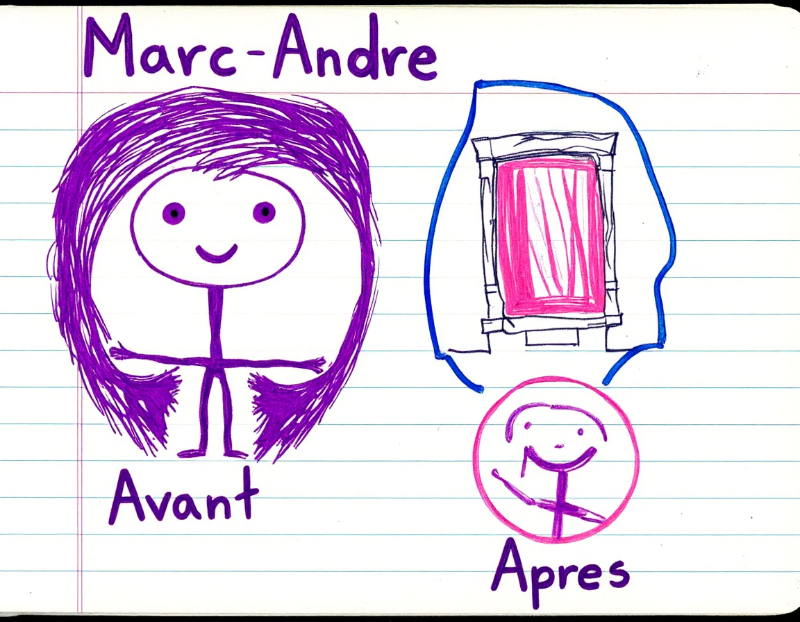 Marc-Andre
Avant
Apres